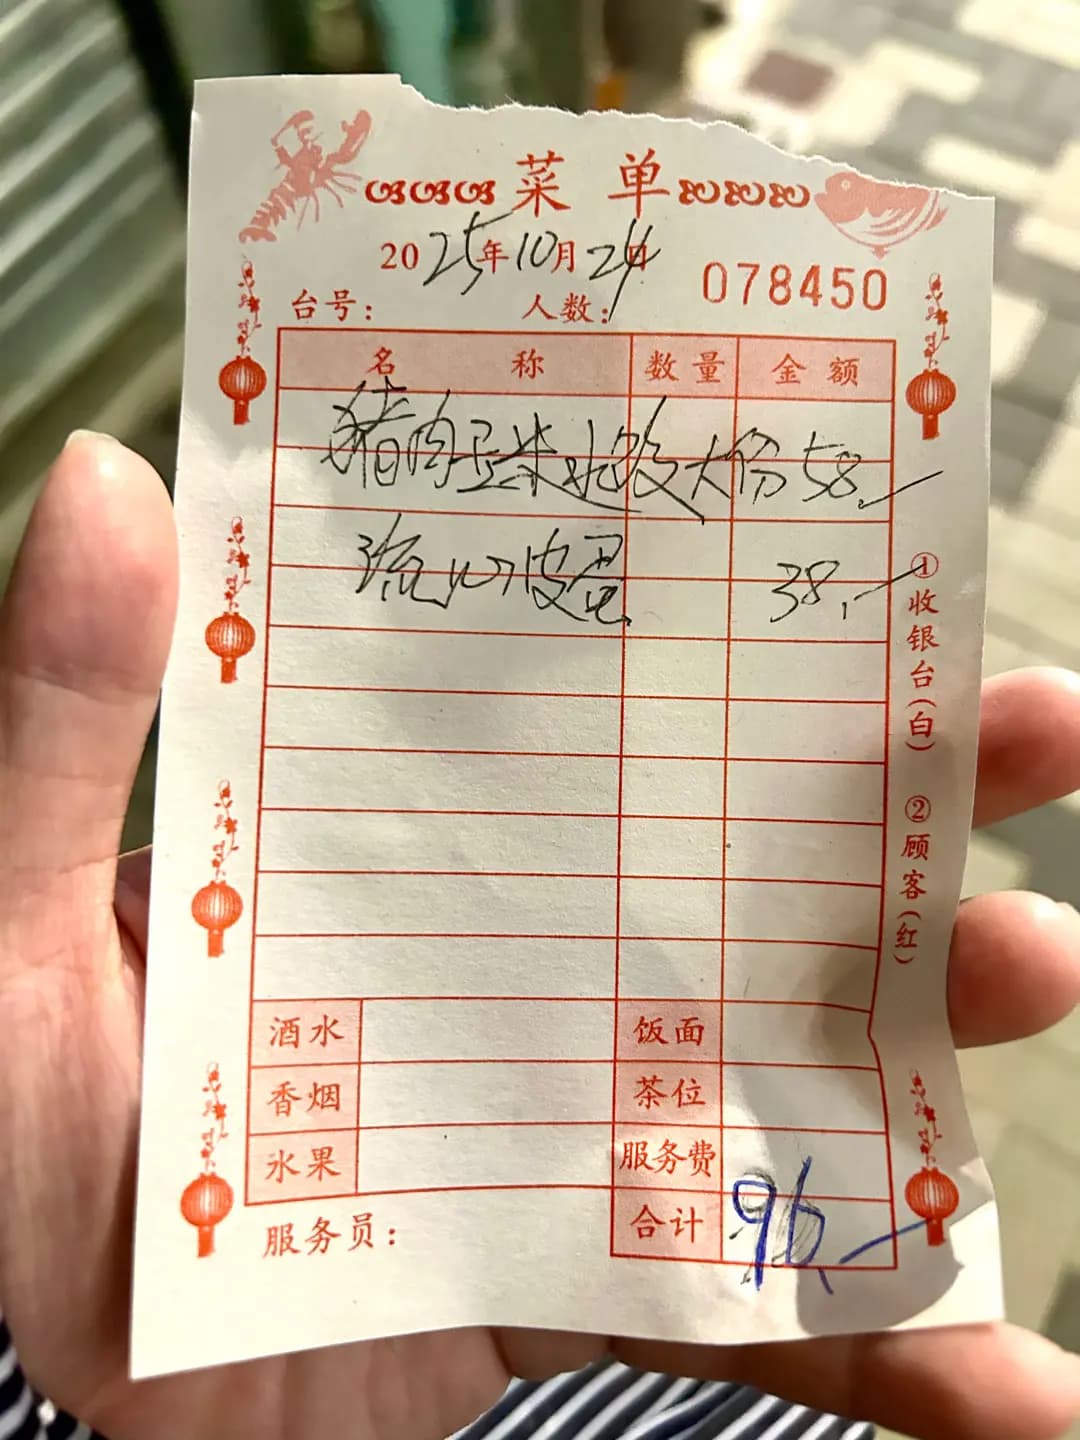 菜单
2025年10月24日
078450
台号： 人数：
名称 数量 金额
猪肉玉米水饺大份 58
流心皮蛋 38
酒水 饭面
香烟 茶位
水果 服务费
合计 96
服务员：
①收银台（白） ②顾客（红）